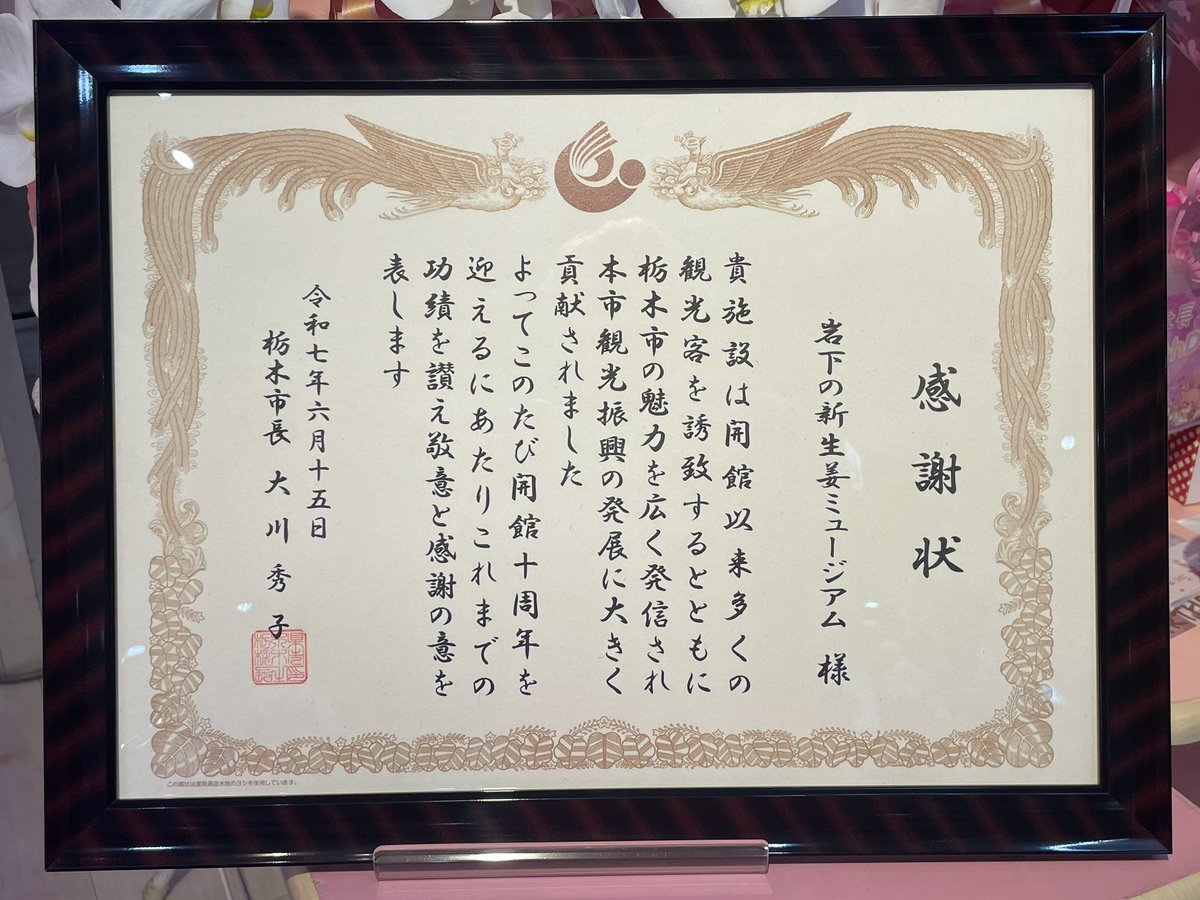 感謝状
岩下の新生姜ミュージアム 様
貴施設は開館以来多くの
観光客を誘致するとともに
栃木市の魅力を広く発信され
本市観光振興の発展に大きく
貢献されました
よってこのたび開館十周年を
迎えるにあたりこれまでの
功績を讃え敬意と感謝の意を
表します
令和七年六月十五日
栃木市長 大川秀子
この賞状は渡良瀬遊水地のヨシを使用しています。